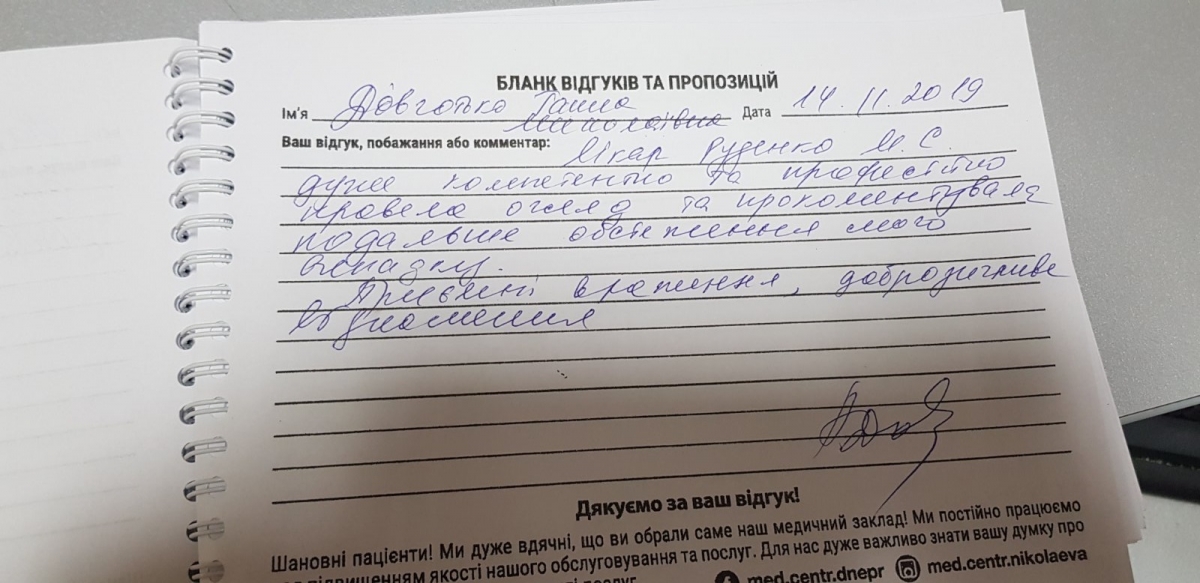 БЛАНК ВІДГУКІВ ТА ПРОПОЗИЦІЙ
Ім'я Довготько Ганна Дата 14.11.2019
Миколаївна
Ваш відгук, побажання або комментар: Лікар Руденко М.С.
дуже компетентно та професійно
провела огляд та прокоментувала
подальше обстеження мого
випадку.
Приємні враження, доброзичливе
відношення
Дякуємо за ваш відгук!
Шановні пацієнти! Ми дуже вдячні, що ви обрали саме наш медичний заклад! Ми постійно працюємо
підвищенням якості нашого обслуговування та послуг. Для нас дуже важливо знати вашу думку про
med.centr.dnepr med.centr.nikolaeva